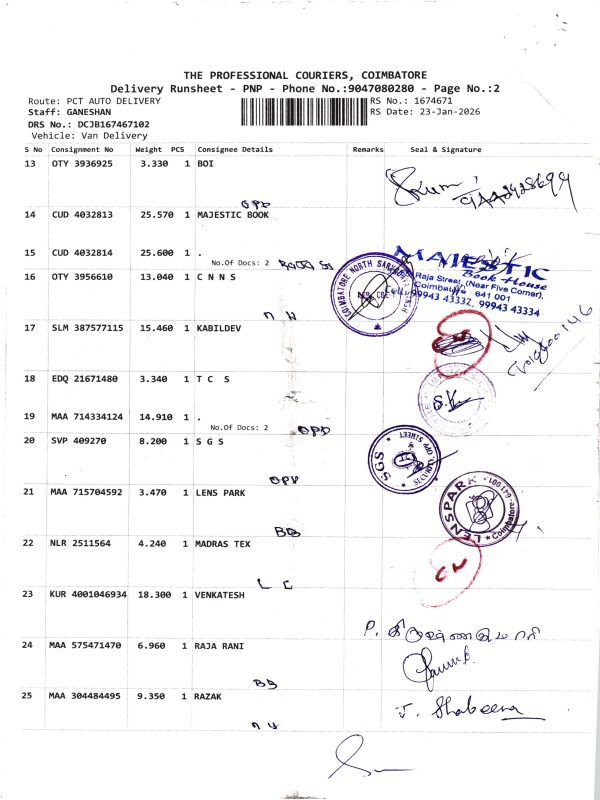 THE PROFESSIONAL COURIERS, COIMBATORE
Delivery Runsheet - PNP - Phone No.:9047080280 - Page No.:2
Route: PCT AUTO DELIVERY
RS No.: 1674671
Staff: GANESHAN
RS Date: 23-Jan-2026
DRS No.: DCJB167467102
Vehicle: Van Delivery
S No Consignment No Weight PCS Consignee Details Remarks Seal & Signature
13 OTY 3936925 3.330 1 BOI
OPP
14 CUD 4032813 25.570 1 MAJESTIC BOOK
15 CUD 4032814 25.600 1 .
No.Of Docs: 2
MAJESTIC
Book House
Raja Street, (Near Five Corner),
Coimbatore 641 001
Cell: 99943 43332, 99943 43334
16 OTY 3956610 13.040 1 C N N S
COIMBATORE NORTH
17 SLM 387577115 15.460 1 KABILDEV
18 EDQ 21671480 3.340 1 T C S
19 MAA 714334124 14.910 1 .
No.Of Docs: 2
OPP
20 SVP 409270 8.200 1 S G S
SGS
OPP
21 MAA 715704592 3.470 1 LENS PARK
LENSPARK
Coimbatore-641 001
BB
22 NLR 2511564 4.240 1 MADRAS TEX
L C
23 KUR 4001046934 18.300 1 VENKATESH
24 MAA 575471470 6.960 1 RAJA RANI
BB
25 MAA 304484495 9.350 1 RAZAK
J. Shabeena